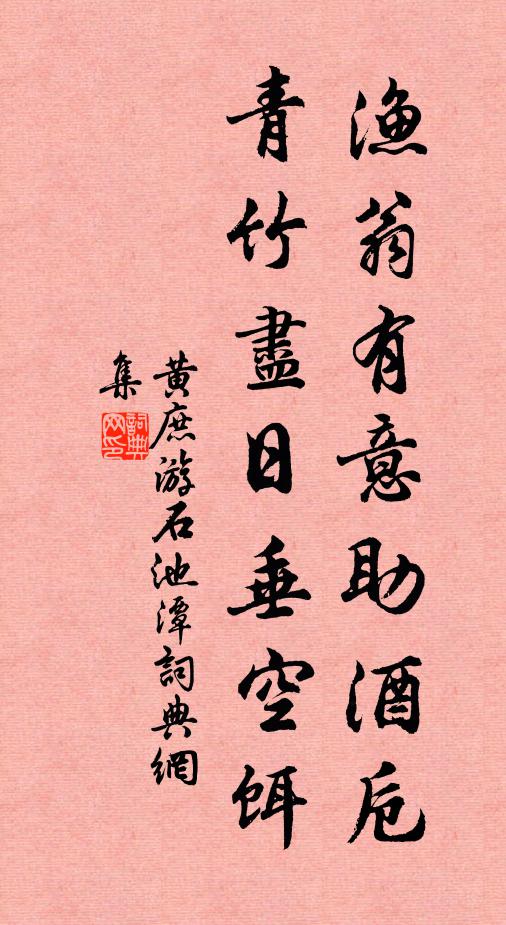 漁翁有意助酒卮
青竹盡日垂空餌
黃庶游石池潭詞典網
集
詞典網印